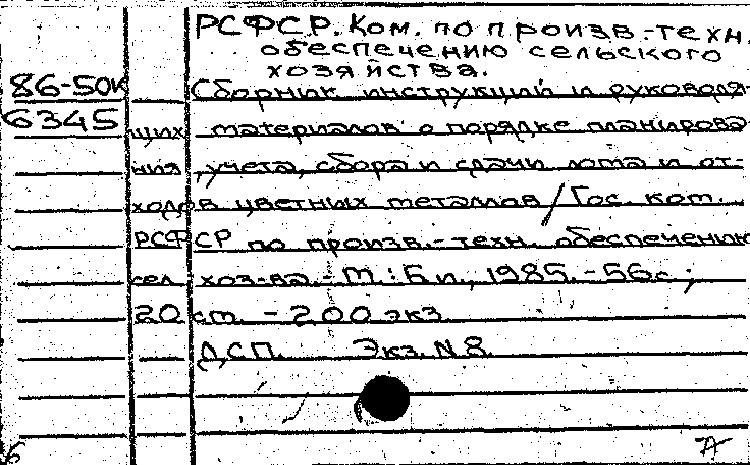 РСФСР. Ком. по произв.-техн.
обеспечению сельского
хозяйства.
86-50к
6345
Сборник инструкций и руководя-
щих материалов о порядке планирова-
ния, учета, сбора и сдачи лома и от-
ходов цветных металлов / Гос. ком.
РСФСР по произв.-техн. обеспечению
сел. хоз-ва. - М.: Б.и., 1985. - 56с.;
20 см. - 200 экз.
ДСП. Экз. N 8.
6